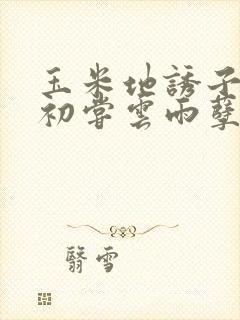 玉米地誘子
初嘗雲雨孽
翳雪